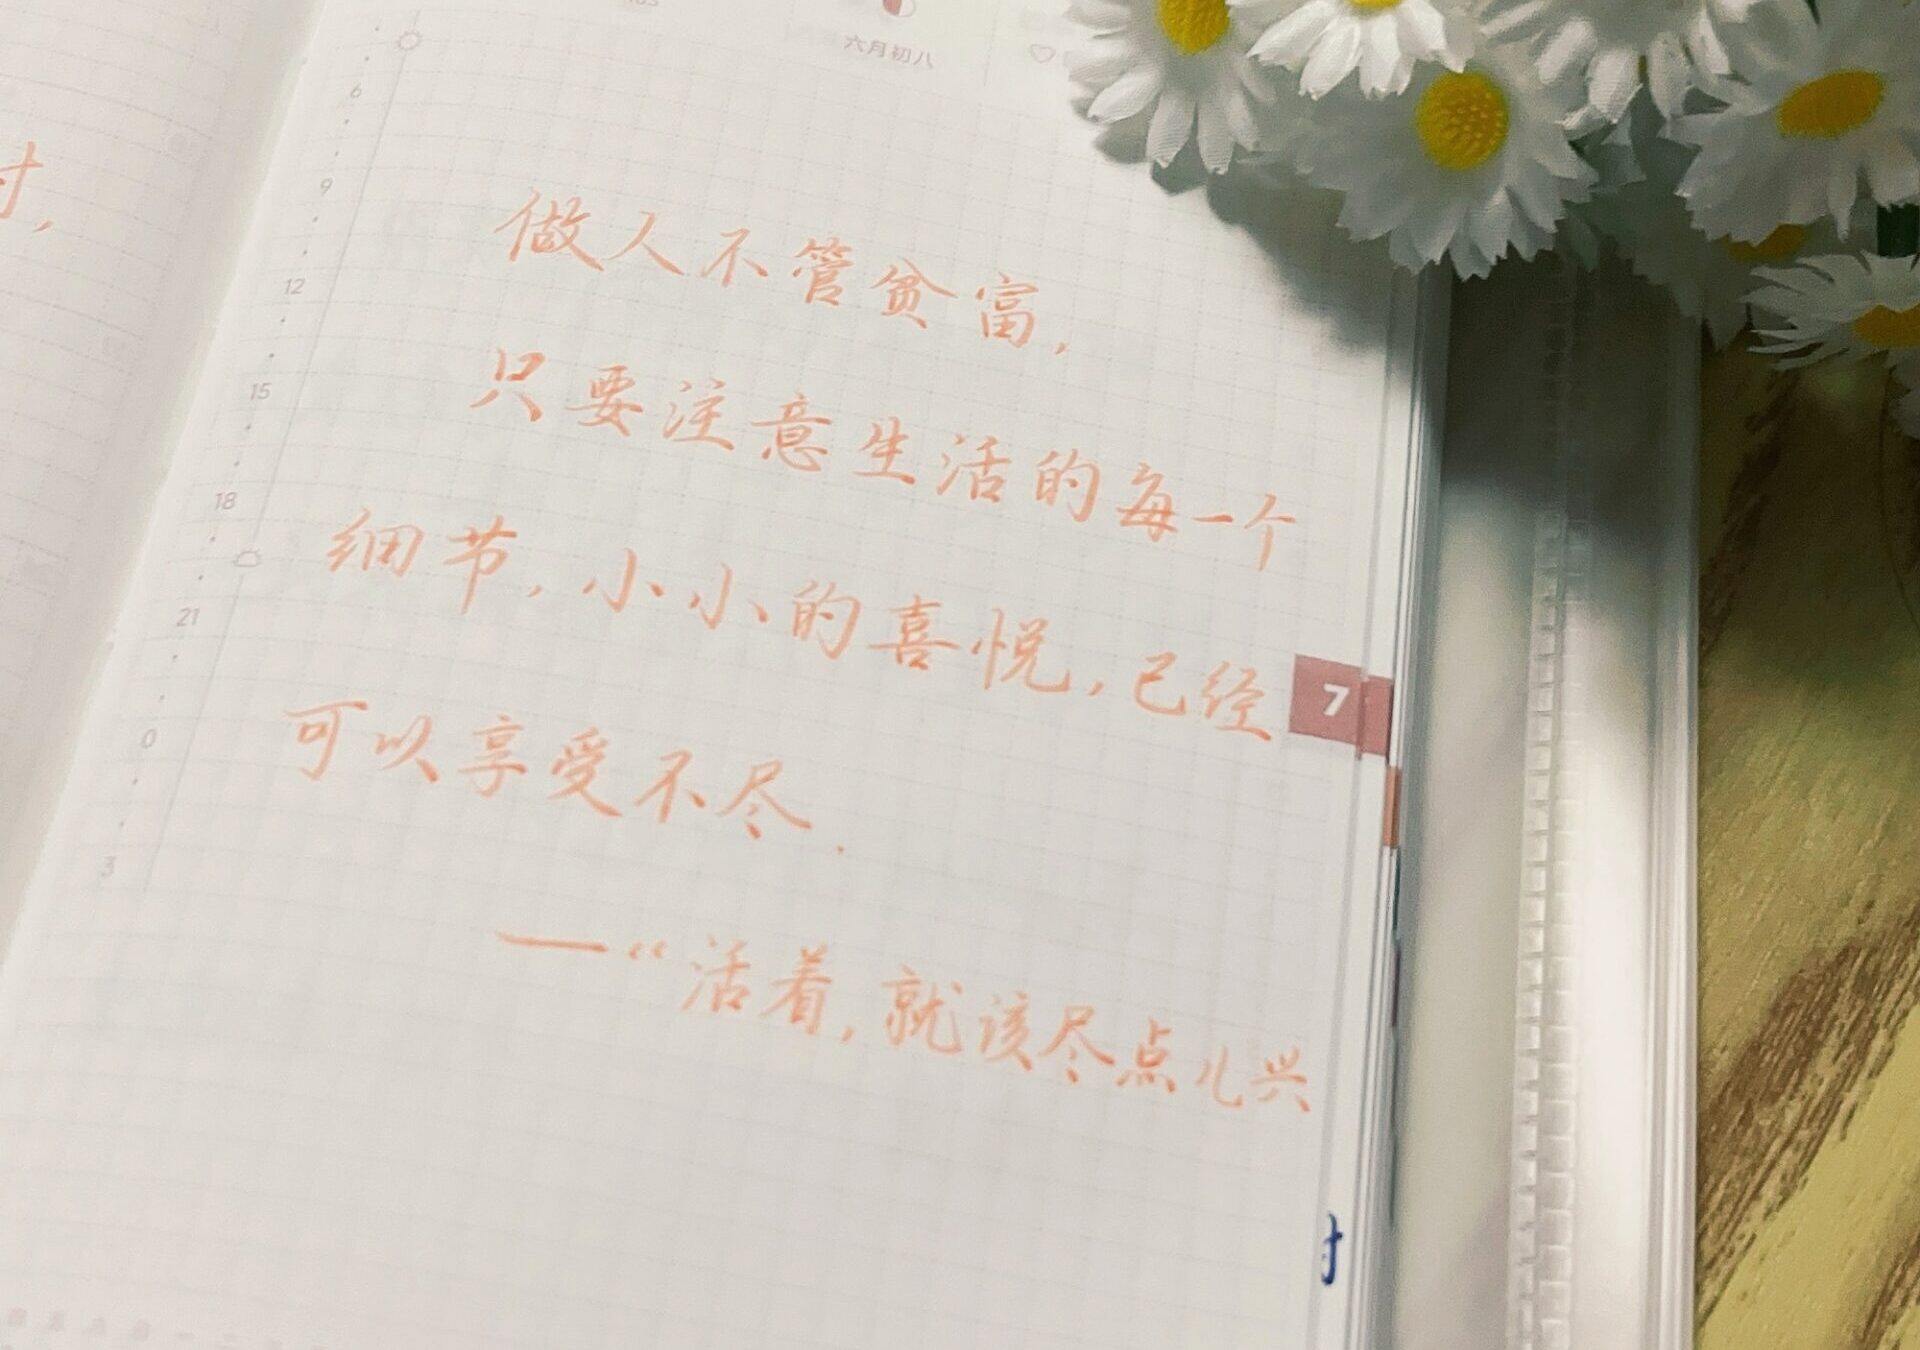 六月初八
6
9
12
15
18
21
0
3
做人不管贫富,
只要注意生活的每一个
细节,小小的喜悦,已经
可以享受不尽.
——“活着,就该尽点儿兴
7